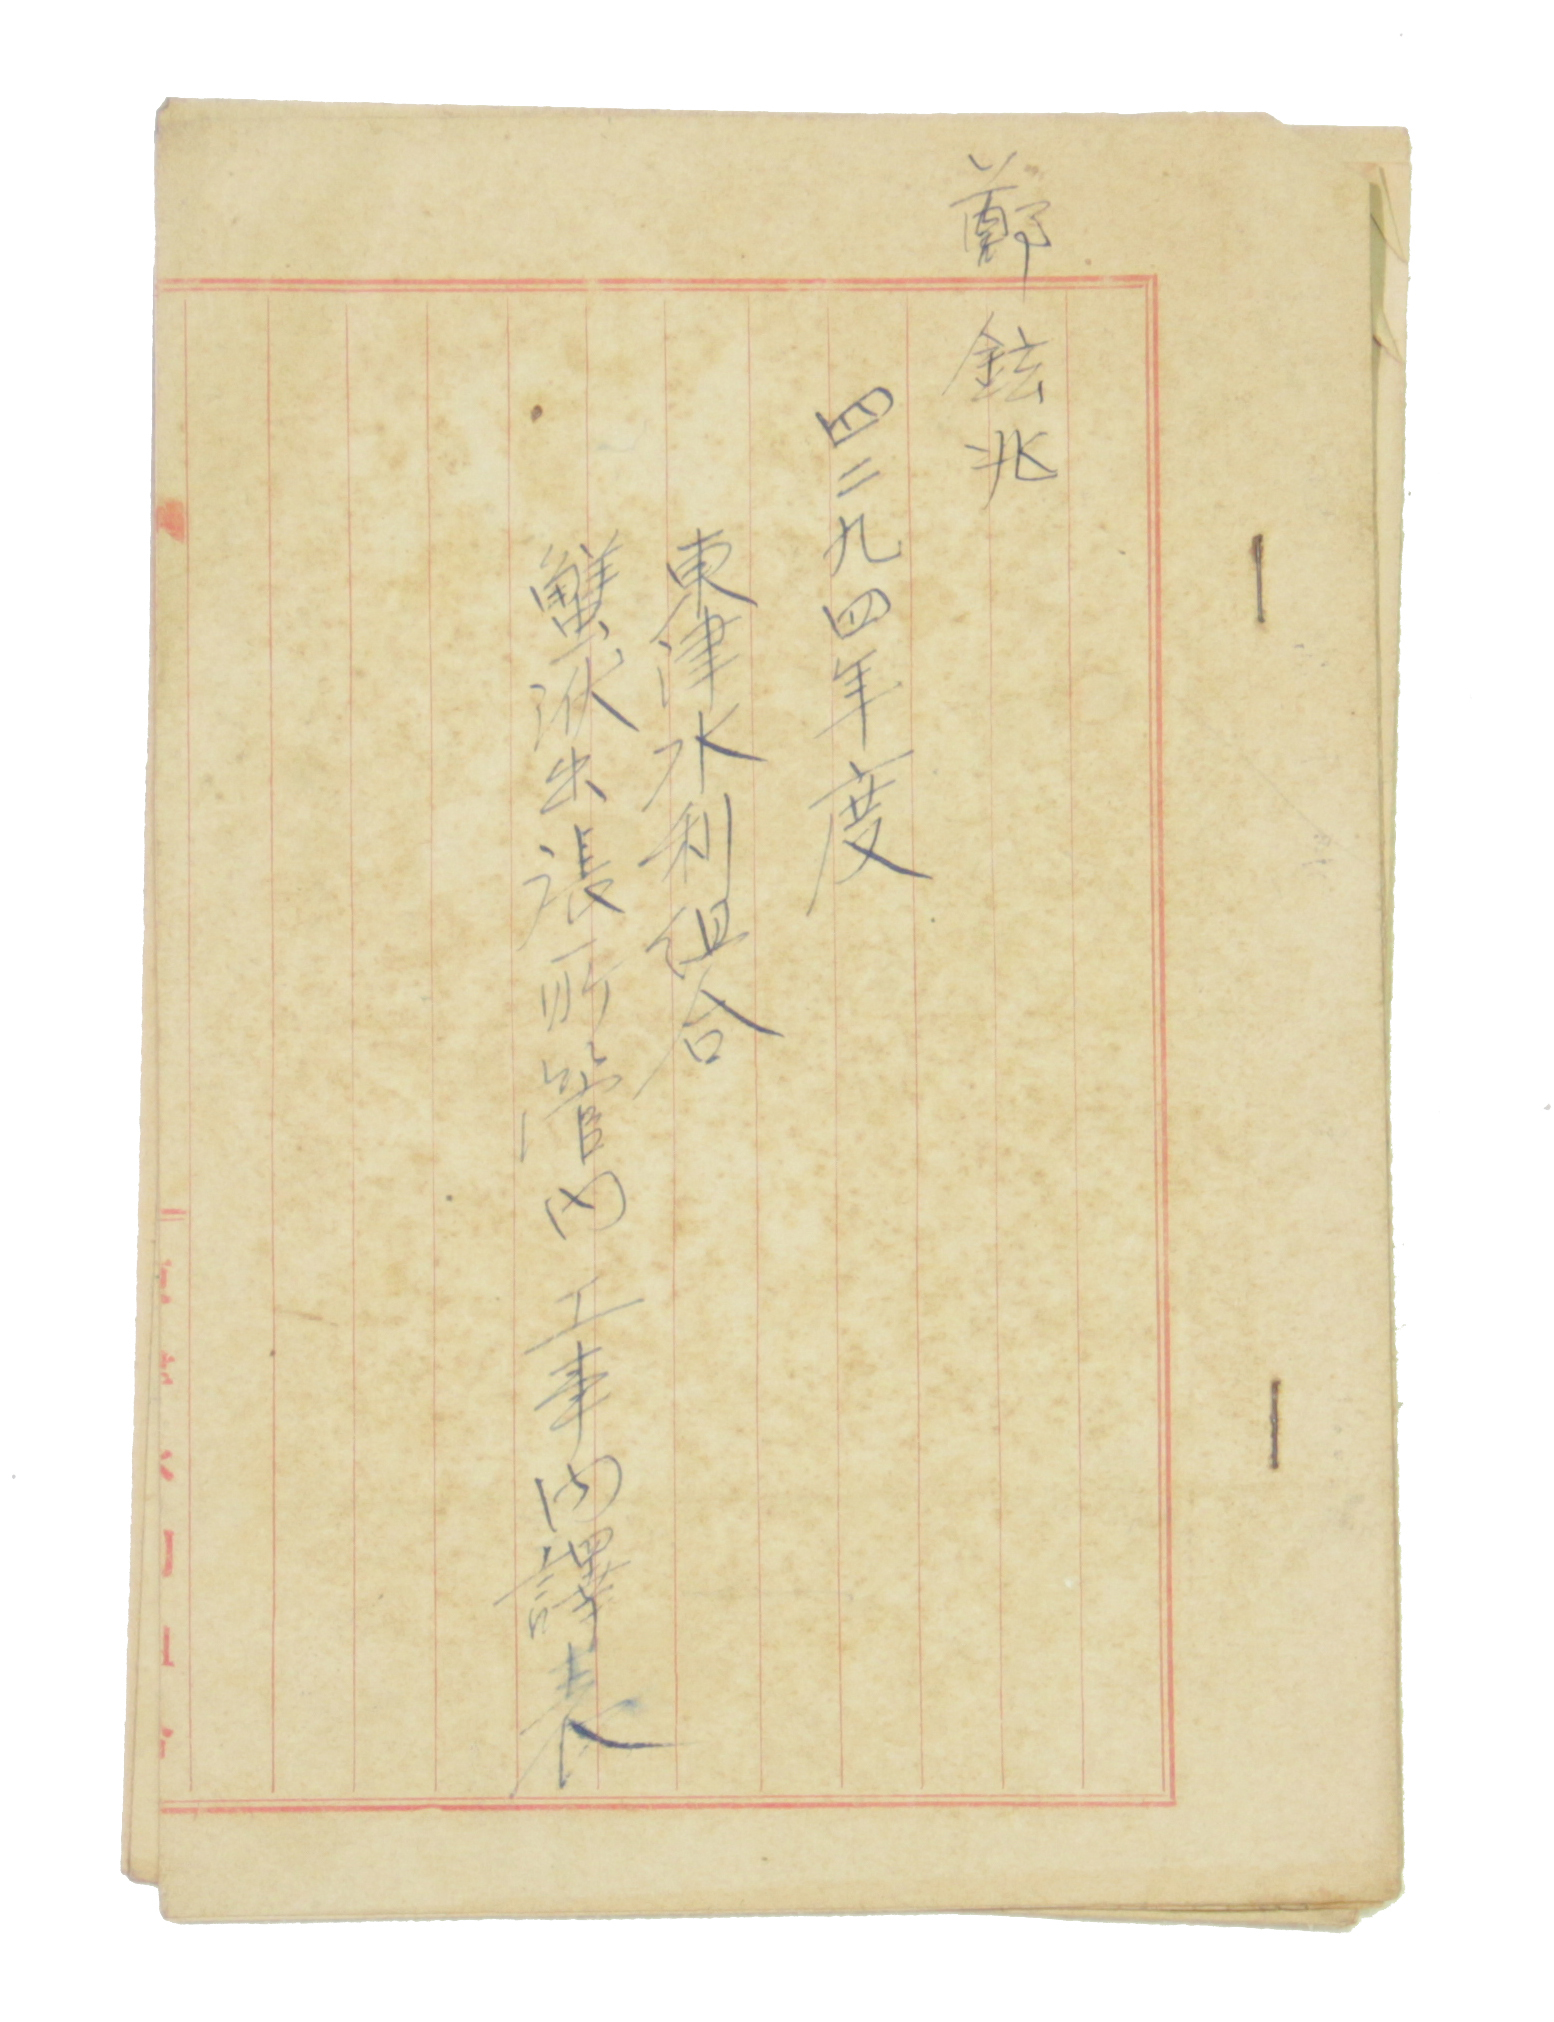 鄭鉉兆
四二九四年度
東津水利組合
蟹洑出張所管內工事內譯表